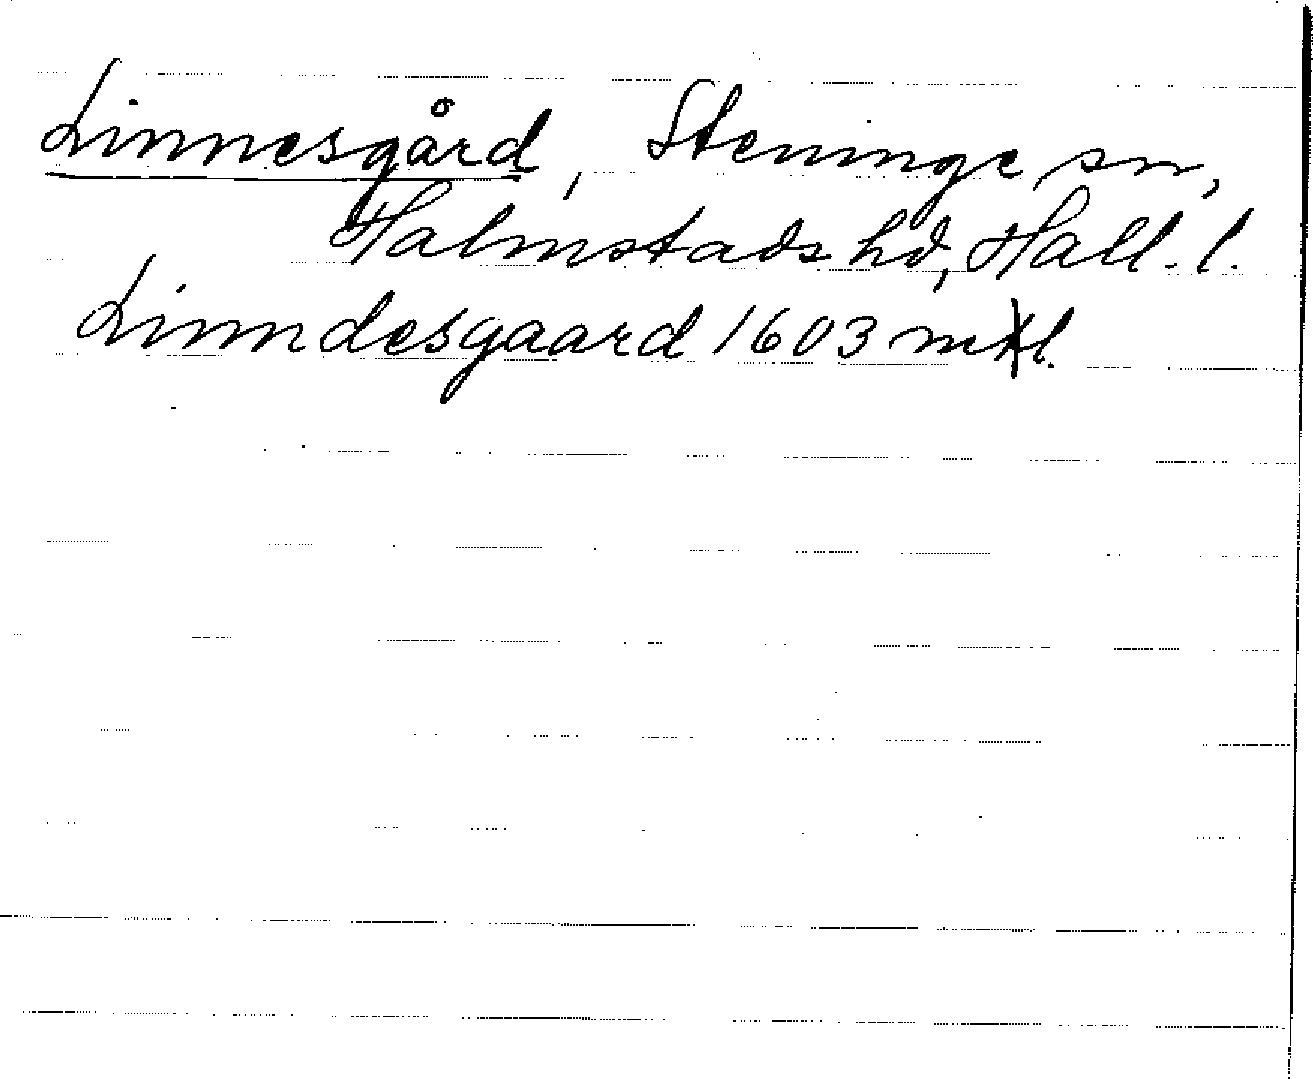 Linnesgård, Steninge sn,
Halmstads hd, Hall. l.
Linndesgaard 1603 mtl.